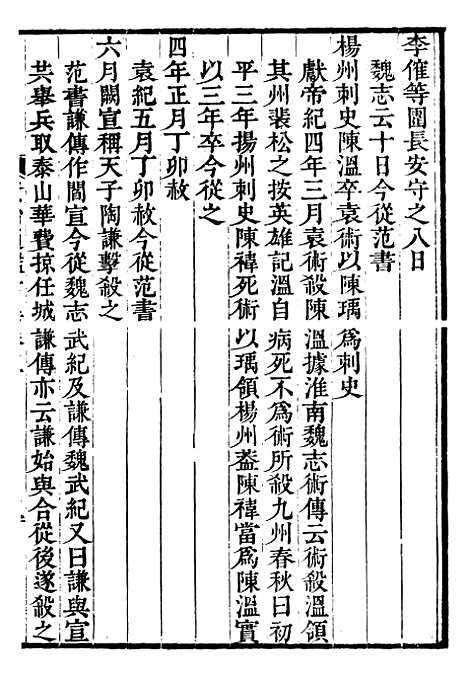 李傕等圍長安守之八日
魏志云十日今從范書
楊州刺史陳溫卒袁術以陳瑀爲刺史
獻帝紀四年三月袁術殺陳溫據淮南魏志術傳云術殺溫領
其州裴松之按英雄記溫自病死不爲術所殺九州春秋曰初
平三年揚州刺史陳禕死術以瑀領楊州葢陳禕當爲陳溫實
以三年卒今從之
四年正月丁卯赦
袁紀五月丁卯赦今從范書
六月闕宣稱天子陶謙擊殺之
范書謙傳作閻宣今從魏志武紀及謙傳魏武紀又曰謙與宣
共舉兵取泰山華費掠任城謙傳亦云謙始與合從後遂殺之